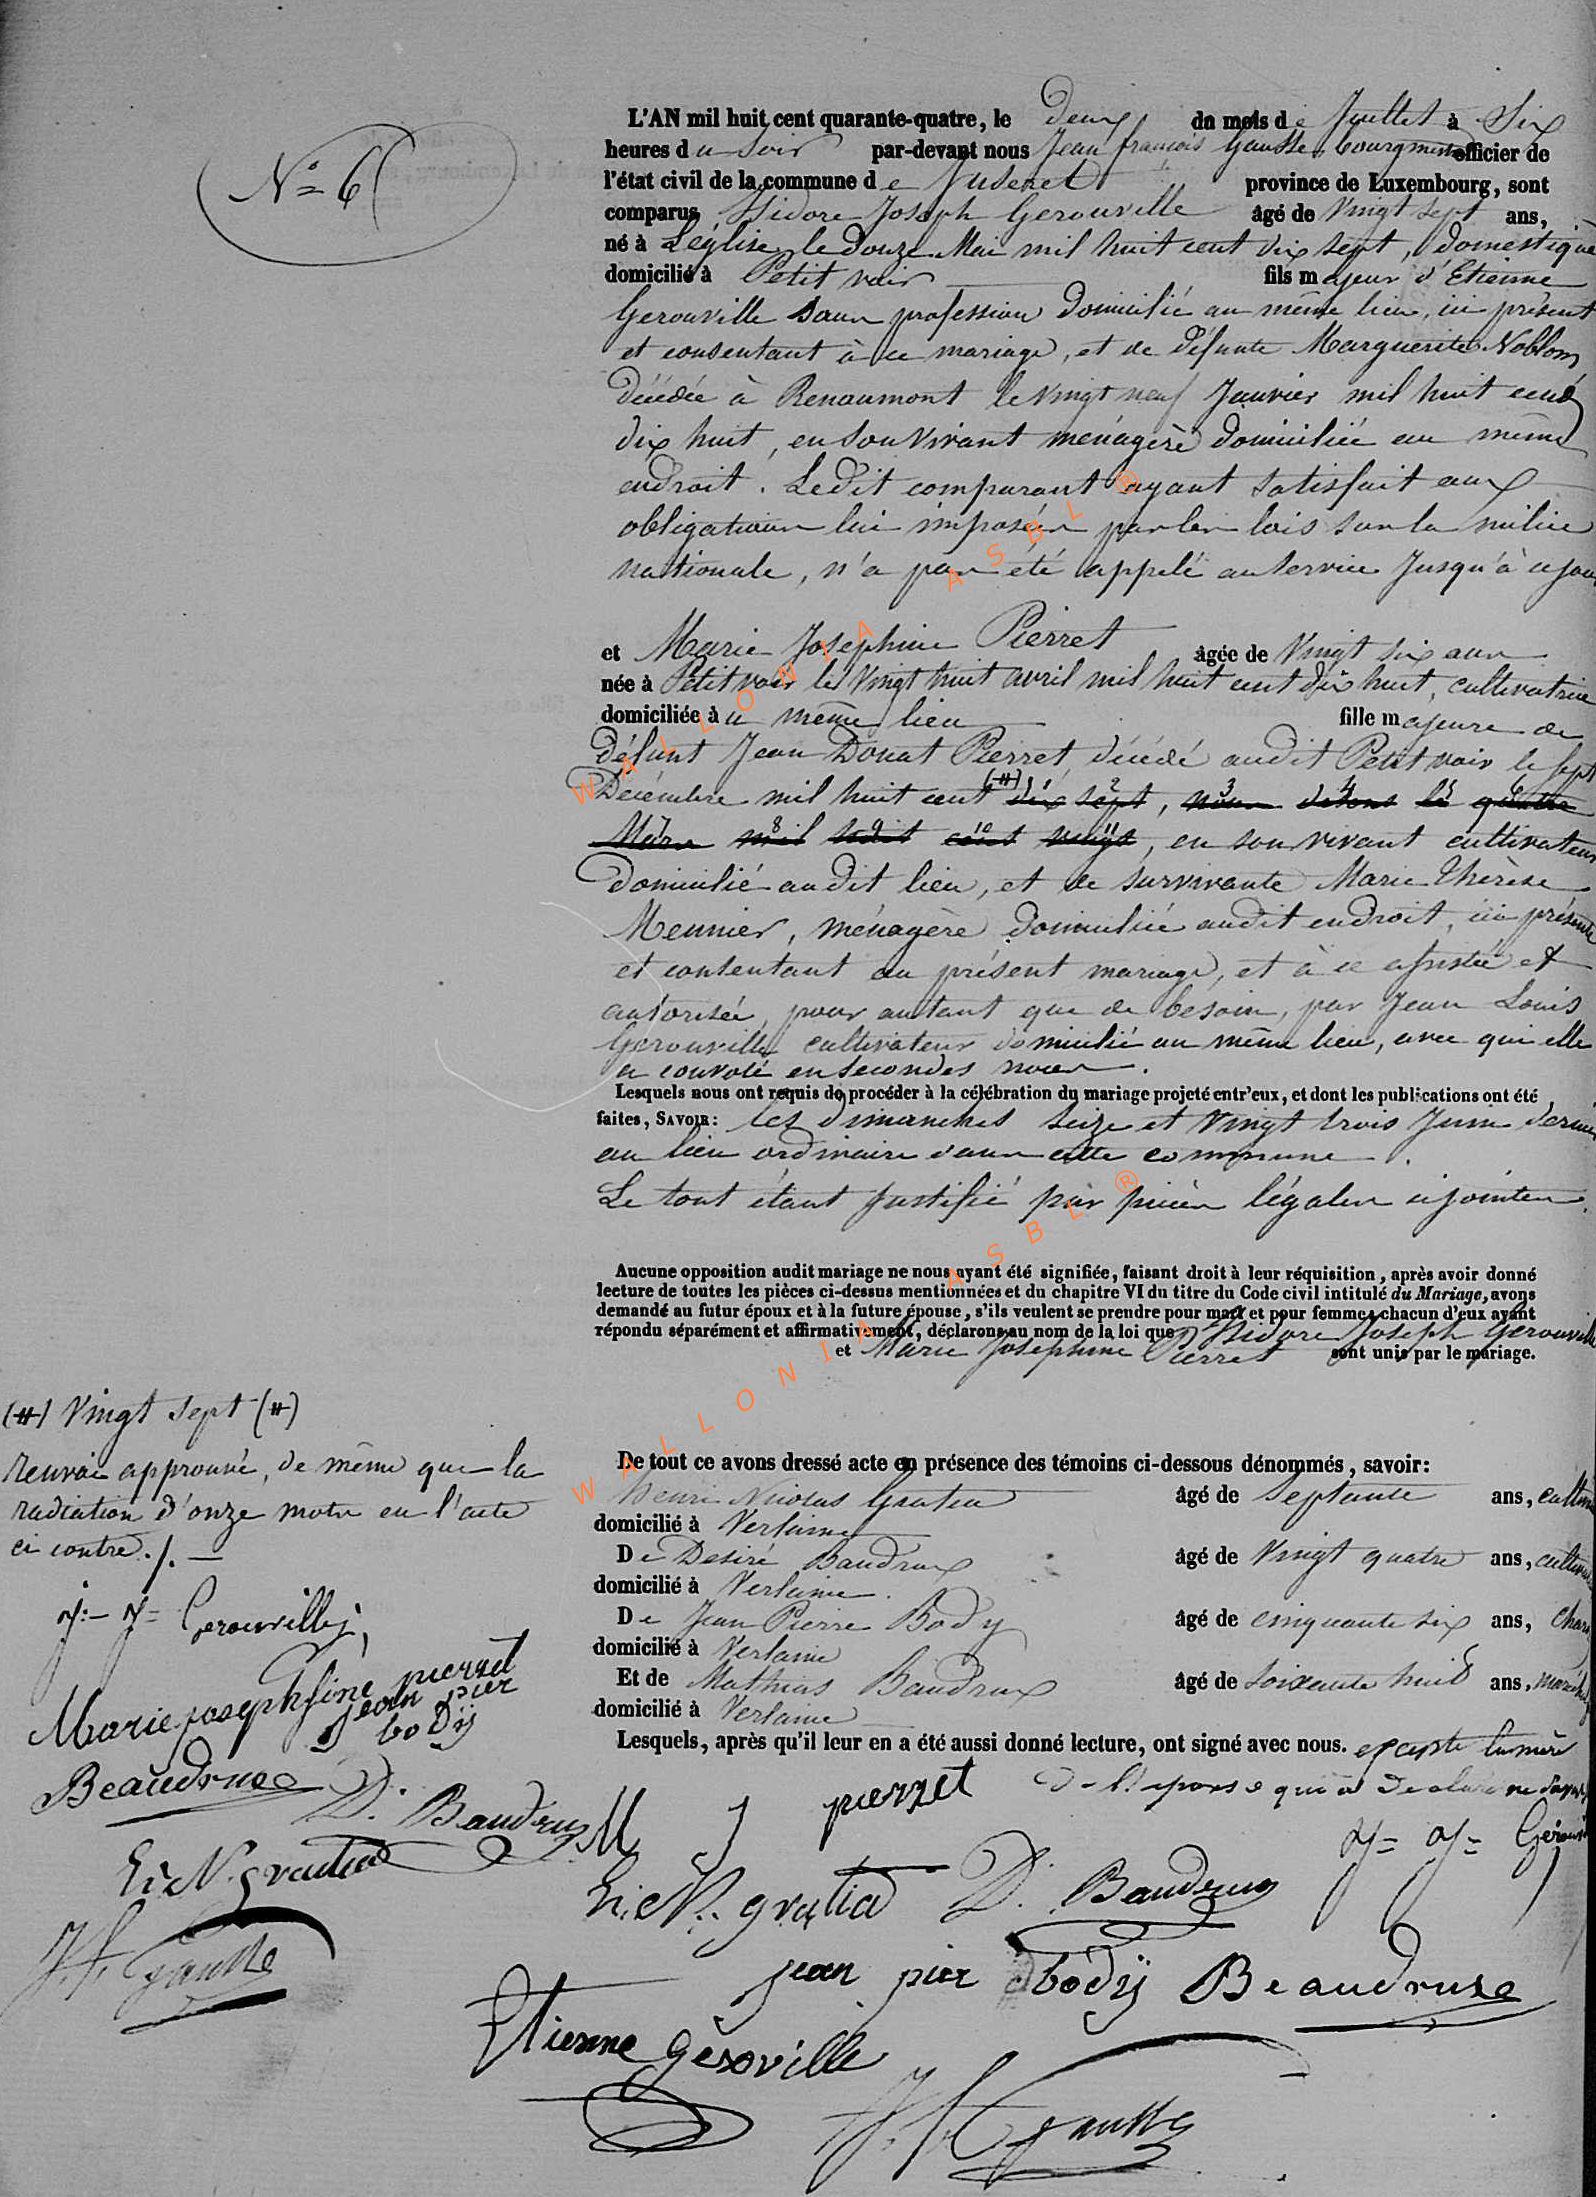 N° 6
L'AN mil huit cent quarante-quatre, le deux du mois de Juillet à Six
heures du soir par-devant nous Jean françois Gausse, bourgmestre officier de
l'état civil de la commune de province de Luxembourg, sont
comparus Isidore Joseph Gerouville âgé de Vingt sept ans,
né à Léglise le douze Mai mil huit cent dix sept, domestique
domicilié à Petit voir fils majeur d'Etienne
Gerouville sans profession domicilié au même lieu, ici présent
et consentant à ce mariage, et de défunte Marguerite Noblom
décédée à Renaumont le vingt neuf Janvier mil huit cent
dix huit, en son vivant ménagère domiciliée au même
endroit. Ledit comparant ayant satisfait aux
obligations lui imposées par les lois sur la milice
nationale, n'a pas été appelé au service jusqu'à ce jour
et Marie Josephine Pierret âgée de Vingt six ans
née à Petitvoir le Vingt huit avril mil huit cent dix huit, cultivatrice
domiciliée au même lieu fille majeure de
défunt Jean Donat Pierret décédé audit Petitvoir le sept
Décembre mil huit cent (#) dix sept, nous disons le quatre
Mars mil huit cent vingt, en son vivant cultivateur
domicilié audit lieu, et de survivante Marie Thérèse
Meunier, ménagère domiciliée audit endroit, ici présente
et consentant au présent mariage, et à ce assistée et
autorisée, pour autant que de besoin, par Jean Louis
Gerouville cultivateur domicilié au même lieu, avec qui elle
a convolé en secondes noces.
Lesquels nous ont requis de procéder à la célébration du mariage projeté entr'eux, et dont les publications ont été
faites, SAVOIR: les dimanches seize et Vingt trois Juin dernier
au lieu ordinaire dans cette commune.
Le tout étant justifié par pièces légales ci jointes.
Aucune opposition audit mariage ne nous ayant été signifiée, faisant droit à leur réquisition, après avoir donné
lecture de toutes les pièces ci-dessus mentionnées et du chapitre VI du titre du Code civil intitulé du Mariage, avons
demandé au futur époux et à la future épouse, s'ils veulent se prendre pour mari et pour femme, chacun d'eux ayant
répondu séparément et affirmativement, déclarons au nom de la loi que Isidore Joseph Gerouville
et Marie Josephine Pierret sont unis par le mariage.
(#) Vingt sept (#)
renvoi approuvé, de même que la
radiation d'onze mots en l'acte
ci contre ./. —
De tout ce avons dressé acte en présence des témoins ci-dessous dénommés, savoir:
Henri Nicolas Gratia âgé de Septante ans, cultiv
domicilié à Verlaine
De Desiré Baudrux âgé de Vingt quatre ans, cultiv
domicilié à Verlaine.
De Jean Pierre Body âgé de cinquante six ans, char
domicilié à Verlaine
Et de Mathias Baudrux âgé de soixante huit ans, maréch
domicilié à Verlaine
Lesquels, après qu'il leur en a été aussi donné lecture, ont signé avec nous. excepté la mère
de l'épouse qui a déclaré ne savoir
j:- j= Gerouville,
Marie josephsine pierret
jean pier
bodÿ
Beaudruxe
D. Baudrux
h: N. gratia
J. f. Gausse
M j pierret
j= j= Gérouv
h: N.. gratia D. Baudrux
jean pier bodÿ Beaudruxe
Etienne géroville
J. f. Gausse
WALLONIA ASBL ®
WALLONIA ASBL ®